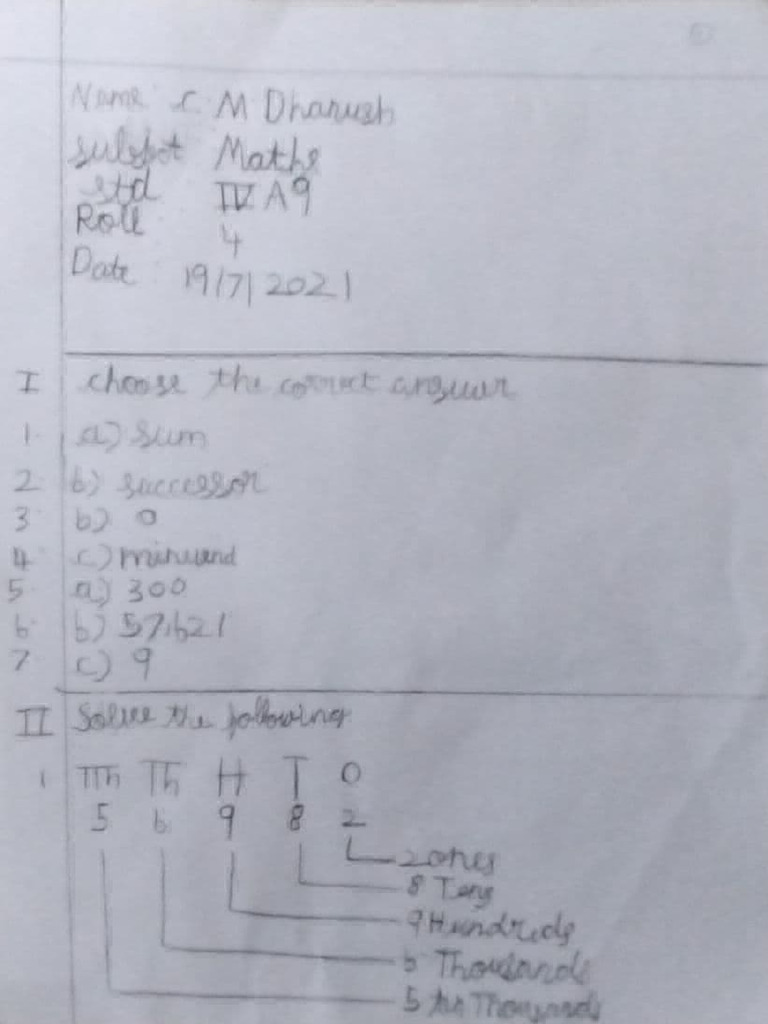 Name C M Dhanush
subject Maths
std IV A9
Roll 4
Date 19/7/2021
I choose the correct answer
1. a) sum
2 b) successor
3 b) 0
4 c) minuend
5 a) 300
6 b) 57,621
7 c) 9
II Solve the following
1 TTh Th H T O
5 6 9 8 2
2 ones
8 Tens
9 Hundreds
6 Thousands
5 ten Thousands